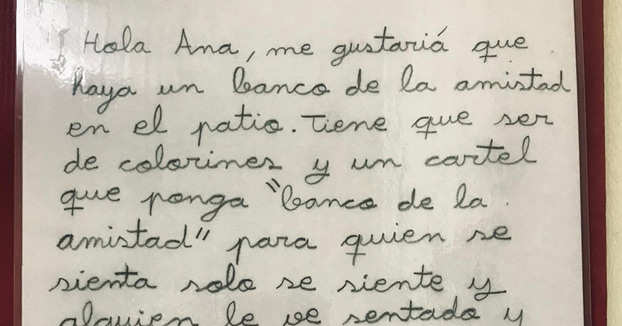 Hola Ana, me gustariá que
haya un banco de la amistad
en el patio. Tiene que ser
de colorines y un cartel
que ponga "banco de la
amistad" para quien se
sienta solo se siente y
alguien le ve sentado y